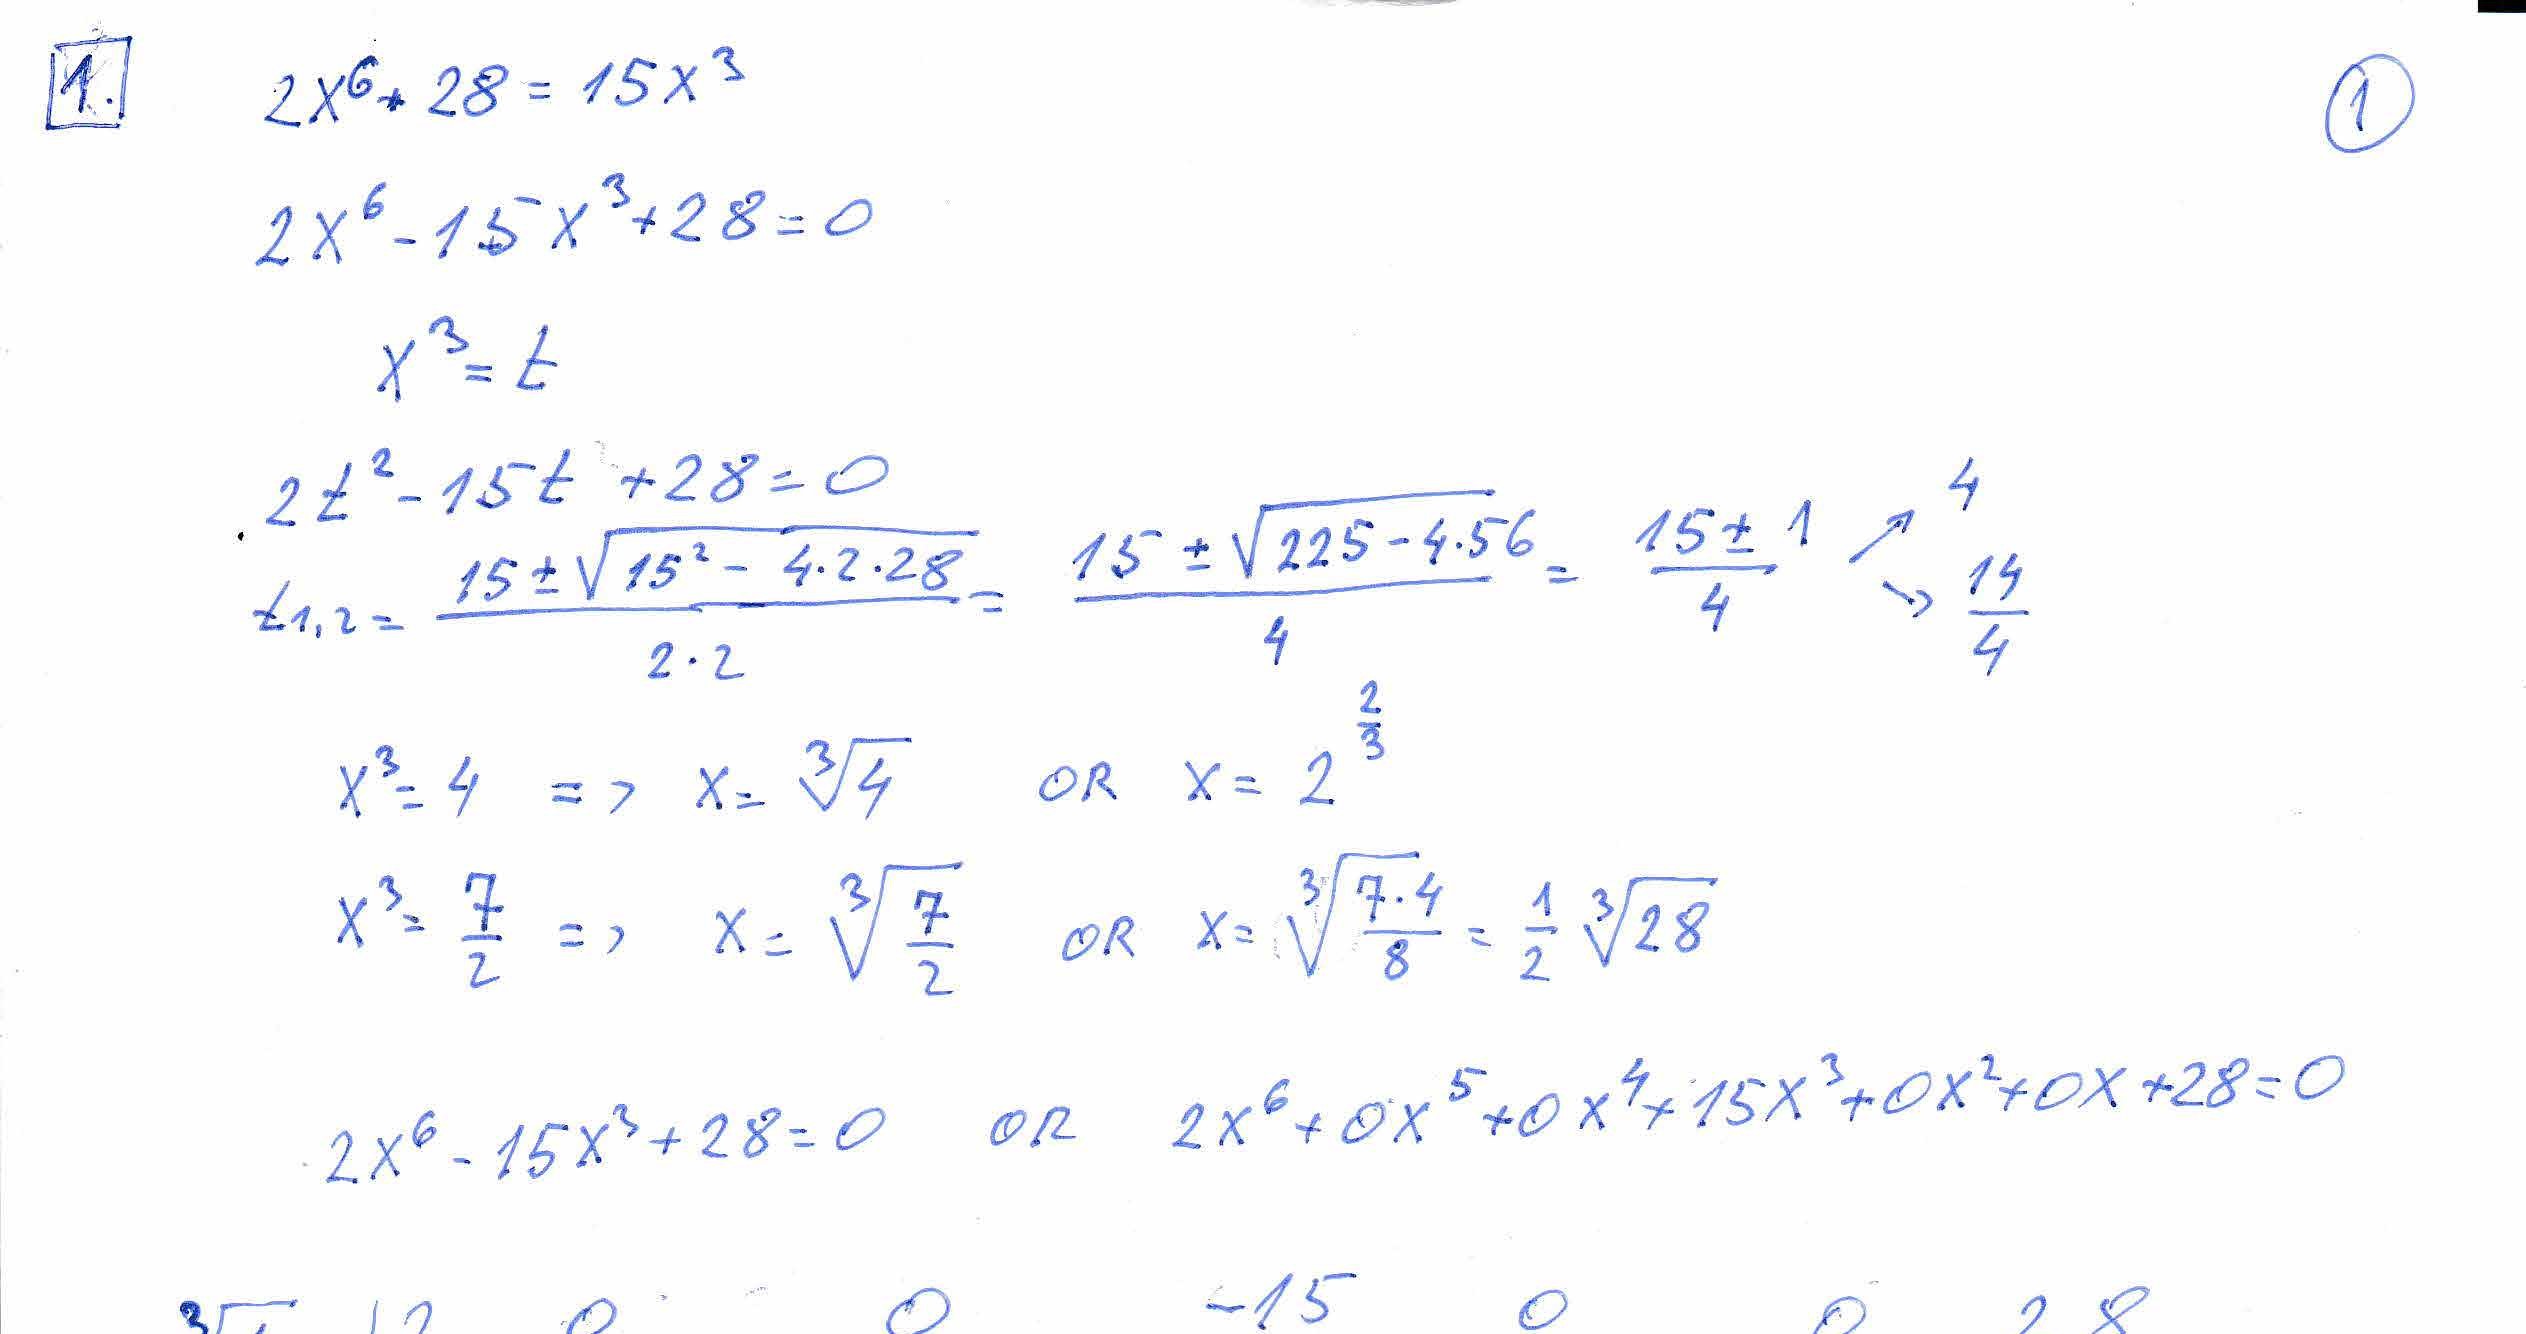 1. 2x⁶ + 28 = 15x³ ①
2x⁶ - 15x³ + 28 = 0
x³ = t
2t² - 15t + 28 = 0
t1,2 = (15 ± √(15² - 4·2·28))/(2·2) = (15 ± √(225 - 4·56))/4 = (15 ± 1)/4 ↗ 4 ↘ 14/4
x³ = 4 => x = ³√4 OR x = 2^(2/3)
x³ = 7/2 => x = ³√(7/2) OR x = ³√(7·4/8) = 1/2 ³√28
2x⁶ - 15x³ + 28 = 0 OR 2x⁶ + 0x⁵ + 0x⁴ + 15x³ + 0x² + 0x + 28 = 0
2 0 0 -15 0 0 28